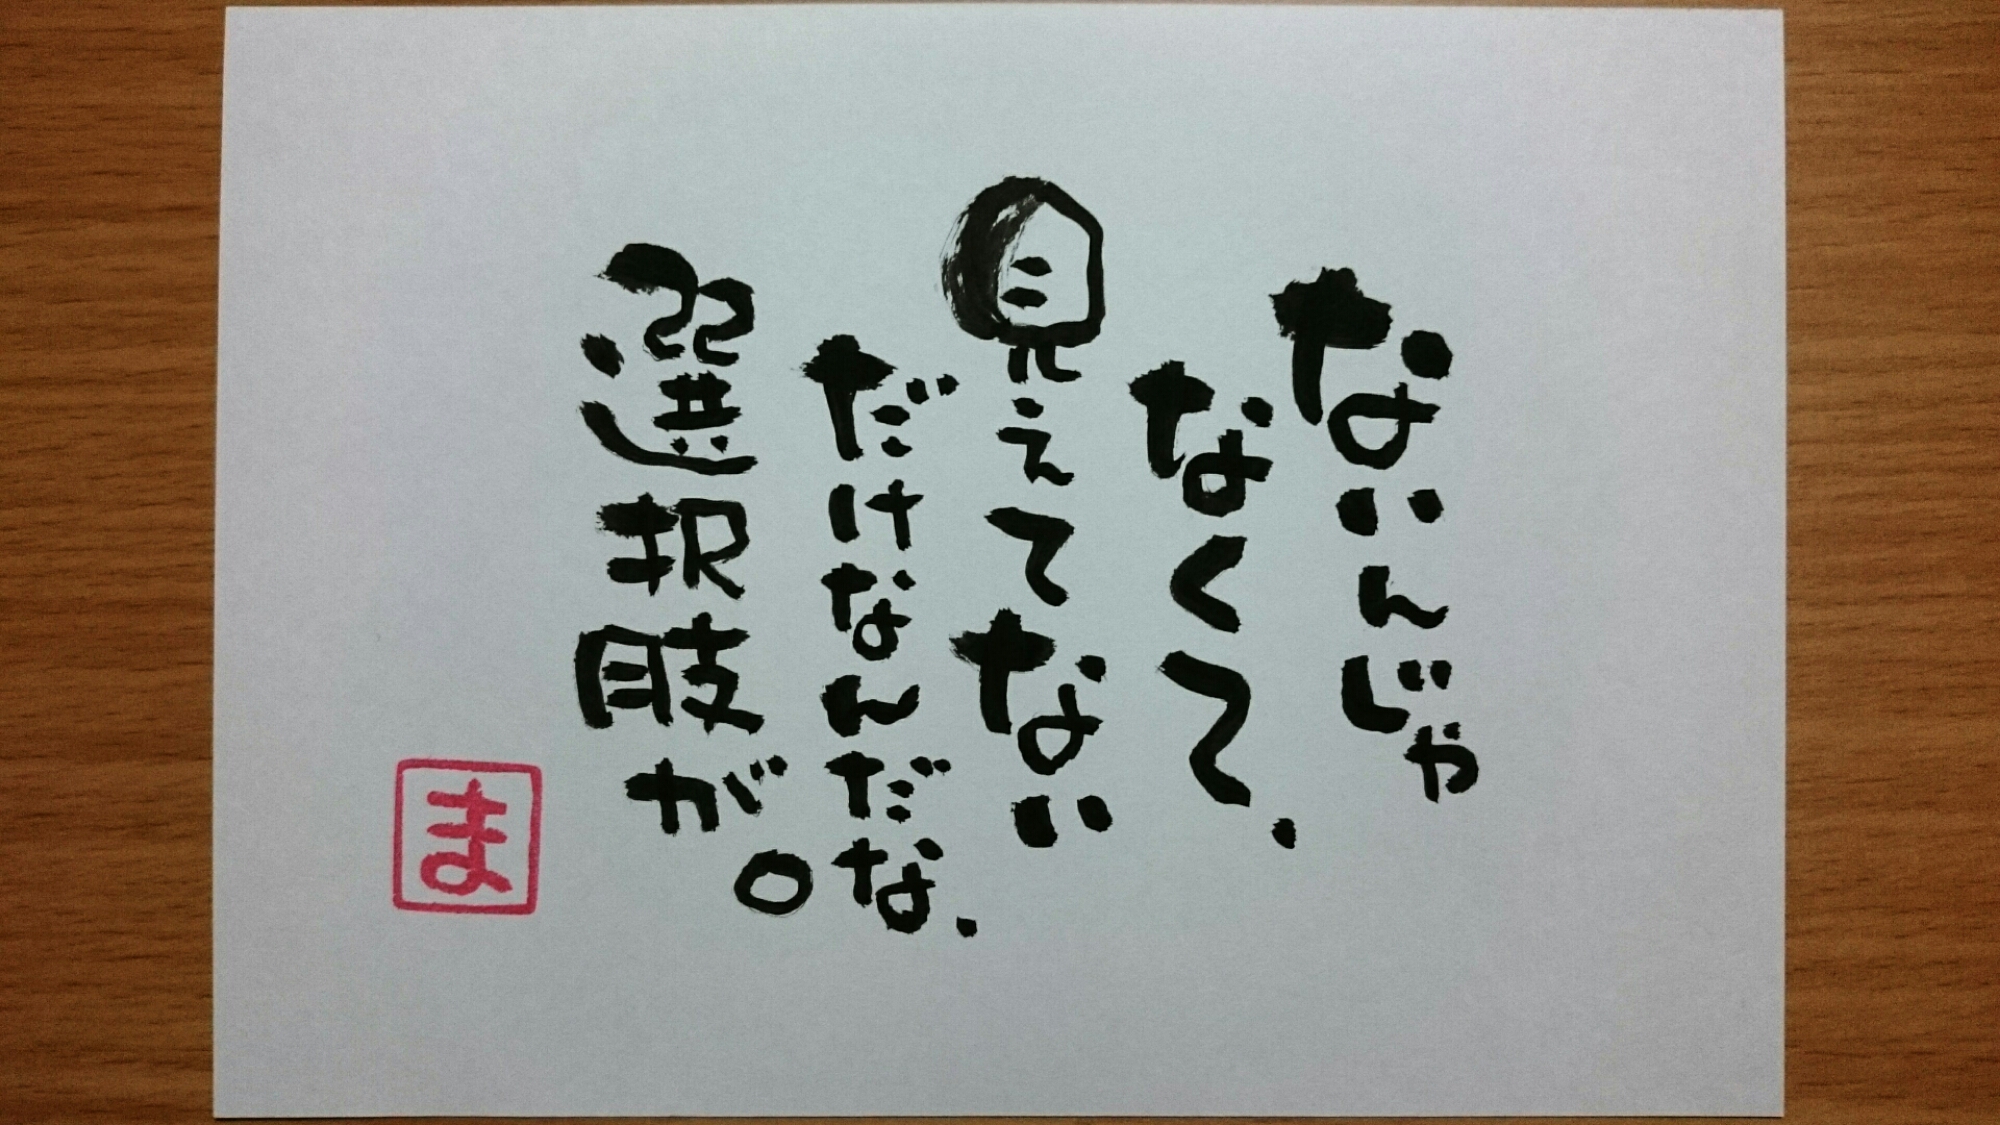 ないんじゃ
なくて、
見えてない
だけなんだな、
選択肢が。
ま